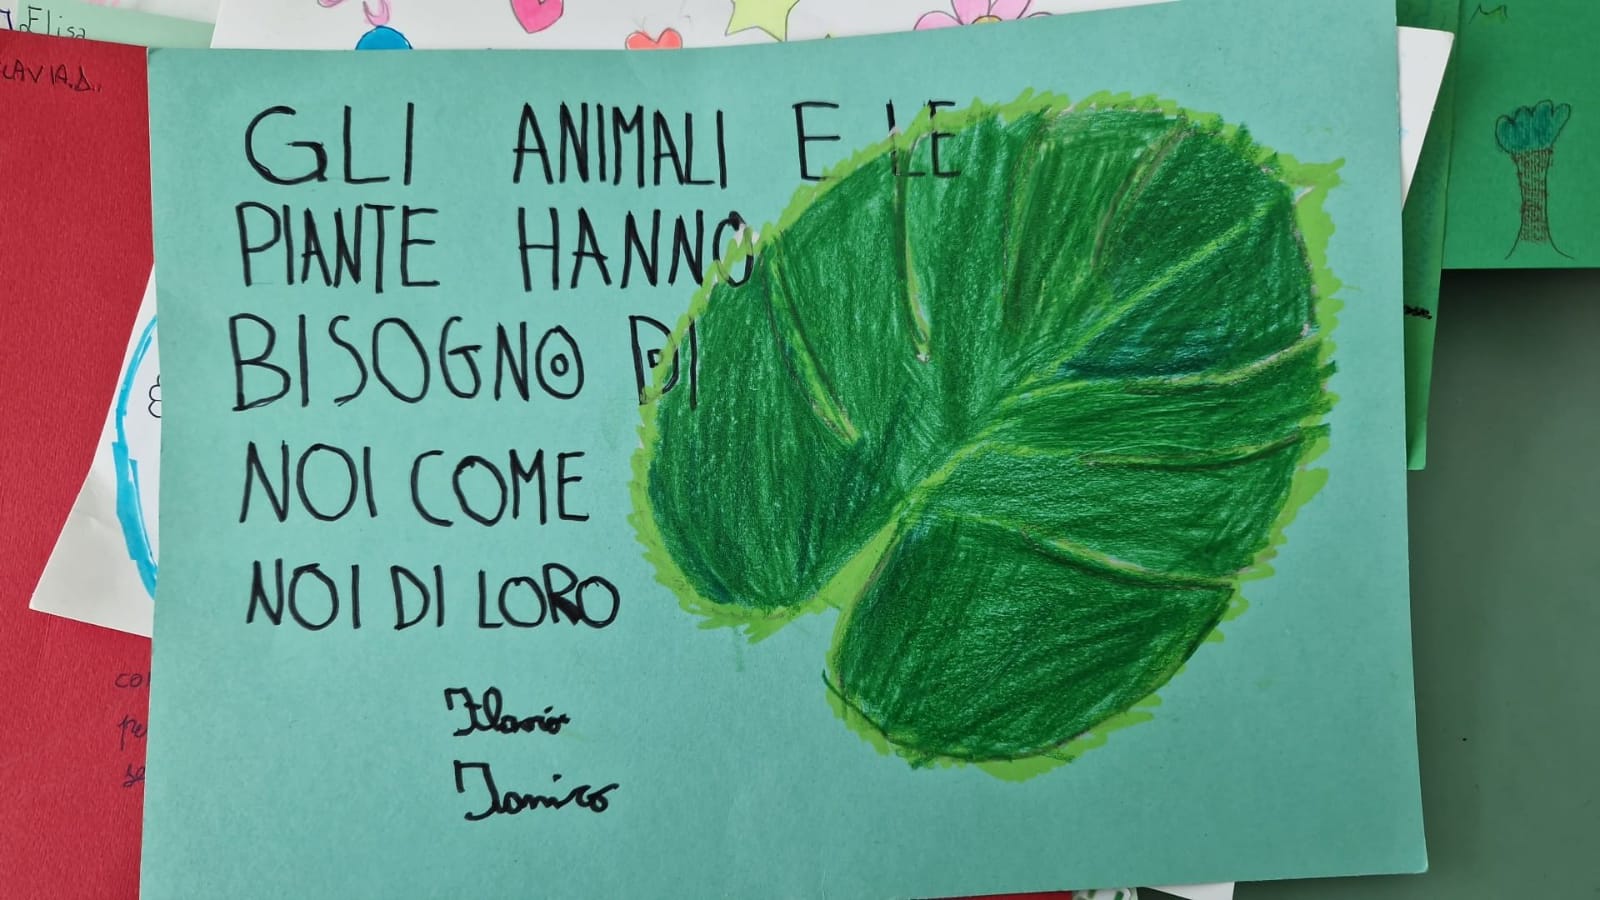 Elisa
FLAVIA.D.
GLI ANIMALI E LE
PIANTE HANNO
BISOGNO DI
NOI COME
NOI DI LORO
Flavio